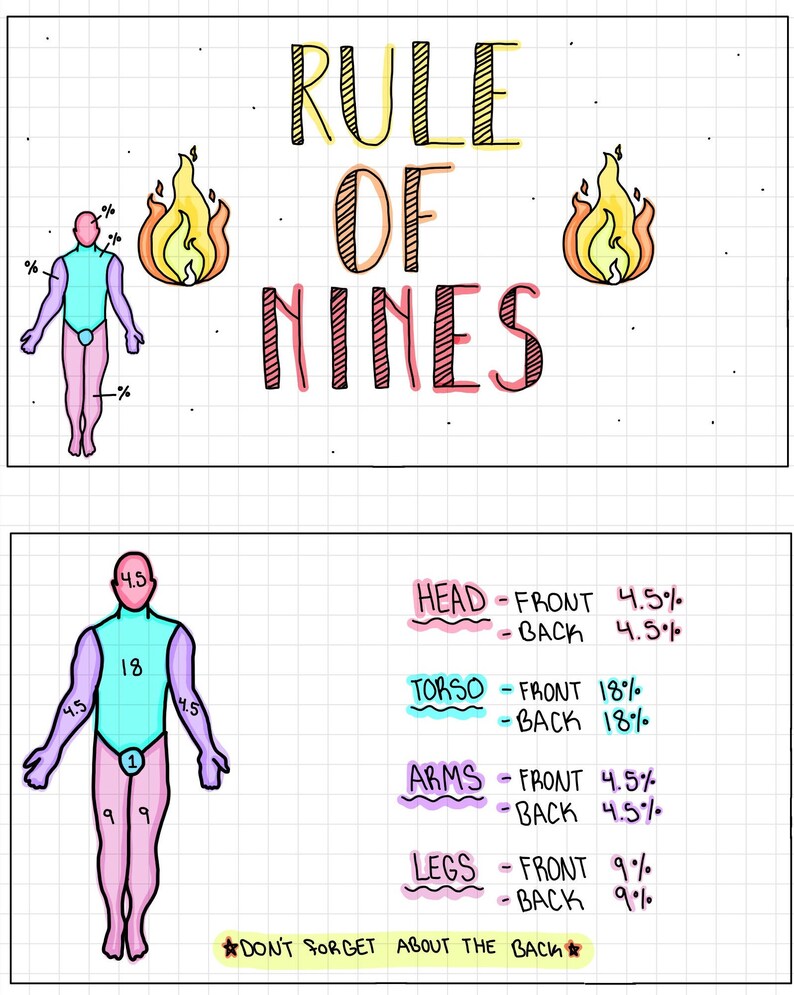 RULE
OF
NINES
%
%
%
%
4.5
18
4.5 4.5
1
9 9
HEAD - FRONT 4.5%
- BACK 4.5%
TORSO - FRONT 18%
- BACK 18%
ARMS - FRONT 4.5%
- BACK 4.5%
LEGS - FRONT 9%
- BACK 9%
★DON'T FORGET ABOUT THE BACK★